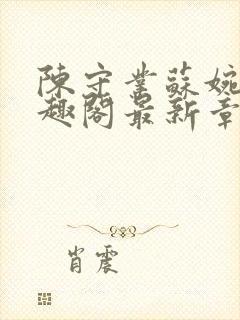 陳守業蘇婉
趣閣最新章
肖震